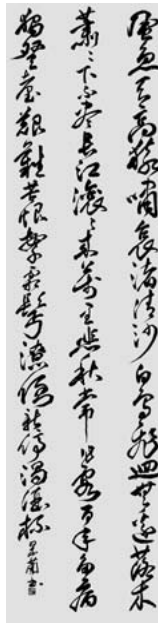 風急天高猿嘯哀渚清沙白鳥飛迴無邊落木
蕭〻下不盡長江滾〻來萬里悲秋常作客百年多病
獨登臺艱難苦恨繁霜鬢潦倒新停濁酒杯 書